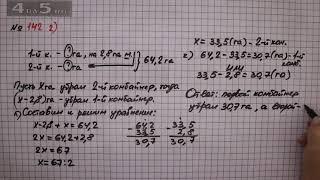 4 да 5 .ми
№ 142 г)
1-й к. - ? га, на 2,8 га м.
2 к. - ? га
64,2 га
Пусть x га убрал 2-й комбайнер, тогда
(x-2,8) га - убрал 1-й комбайнер.
б) Составим и решим уравнение:
x-2,8 + x = 64,2
2x = 64,2+2,8
2x = 67
x = 67:2
- 64,2
33,5
30,7
- 33,5
2,8
30,7
x = 33,5 (га) - 2-й ком.
2) 64,2 - 33,5 = 30,7 (га) - 1-й
ком.
или
33,5 - 2,8 = 30,7 (га)
Ответ: первый комбайнер
убрал 30,7 га, а второй -